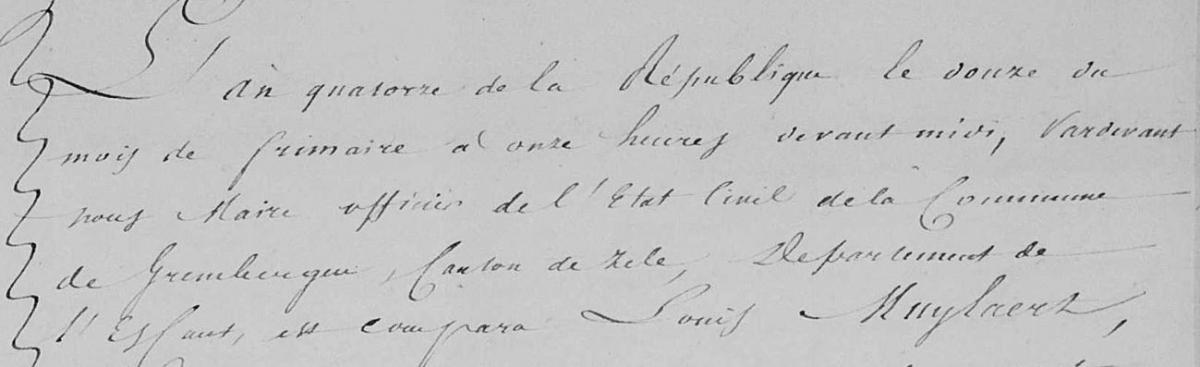 L'an quatorze de la République le douze du
mois de frimaire à onze heures devant midi, Pardevant
nous Maire officier de l'Etat Civil de la Commune
de Grembergue, Canton de Zele, Departement de
l'Escaut, est comparu Louis Muylaert,